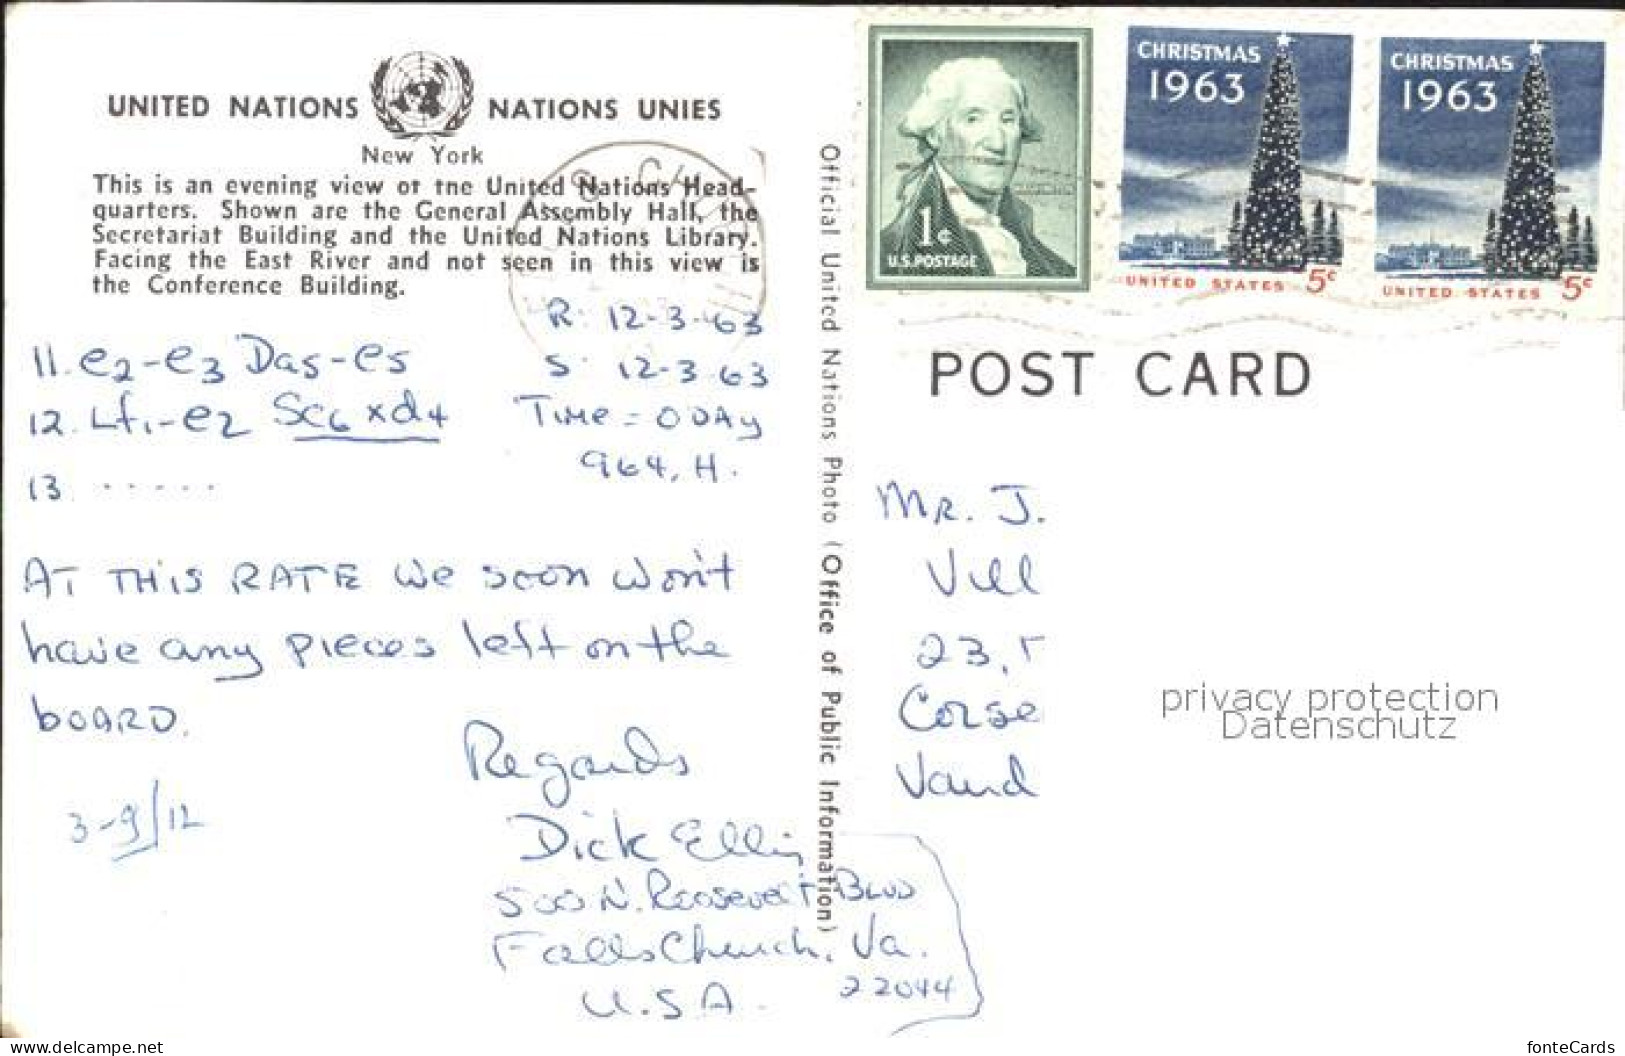 UNITED NATIONS NATIONS UNIES
New York
This is an evening view of the United Nations Head-
quarters. Shown are the General Assembly Hall, the
Secretariat Building and the United Nations Library.
Facing the East River and not seen in this view is
the Conference Building.
R. 12-3-63
S. 12-3-63
TIME = 0 DAY
964, H.
11. e2-e3 Da5-c5
12. Lf1-e2 Sc6xd4
13 ......
AT THIS RATE we soon won't
have any pieces left on the
BOARD.
Regards
3-9/12
Dick Ellis
500 N. Roosevelt BLVD
Falls Church, Va.
22044
U.S.A.
Official United Nations Photo (Office of Public Information)
1¢
U.S. POSTAGE
CHRISTMAS
1963
UNITED STATES 5¢
CHRISTMAS
1963
UNITED STATES 5¢
POST CARD
MR. J.
Vill
23,
Corse
Vand
privacy protection
Datenschutz
www.delcampe.net
fonteCards